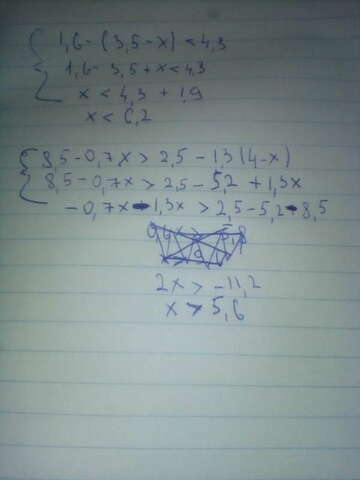 1,6 - (3,5 - x) < 4,3
1,6 - 3,5 + x < 4,3
x < 4,3 + 1,9
x < 6,2
8,5 - 0,7x > 2,5 - 1,3(4 - x)
8,5 - 0,7x > 2,5 - 5,2 + 1,3x
-0,7x - 1,3x > 2,5 - 5,2 - 8,5
2x > -11,2
x > 5,6